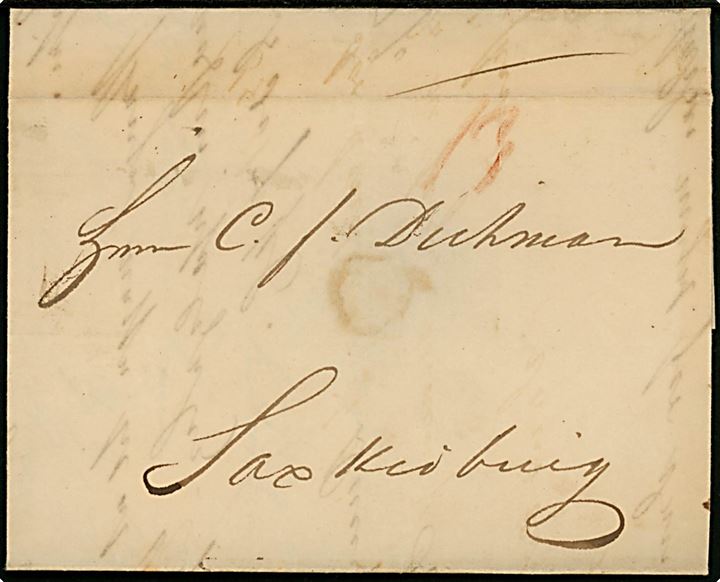 13
Herrn C. J. Dichman
Saxkiöbing